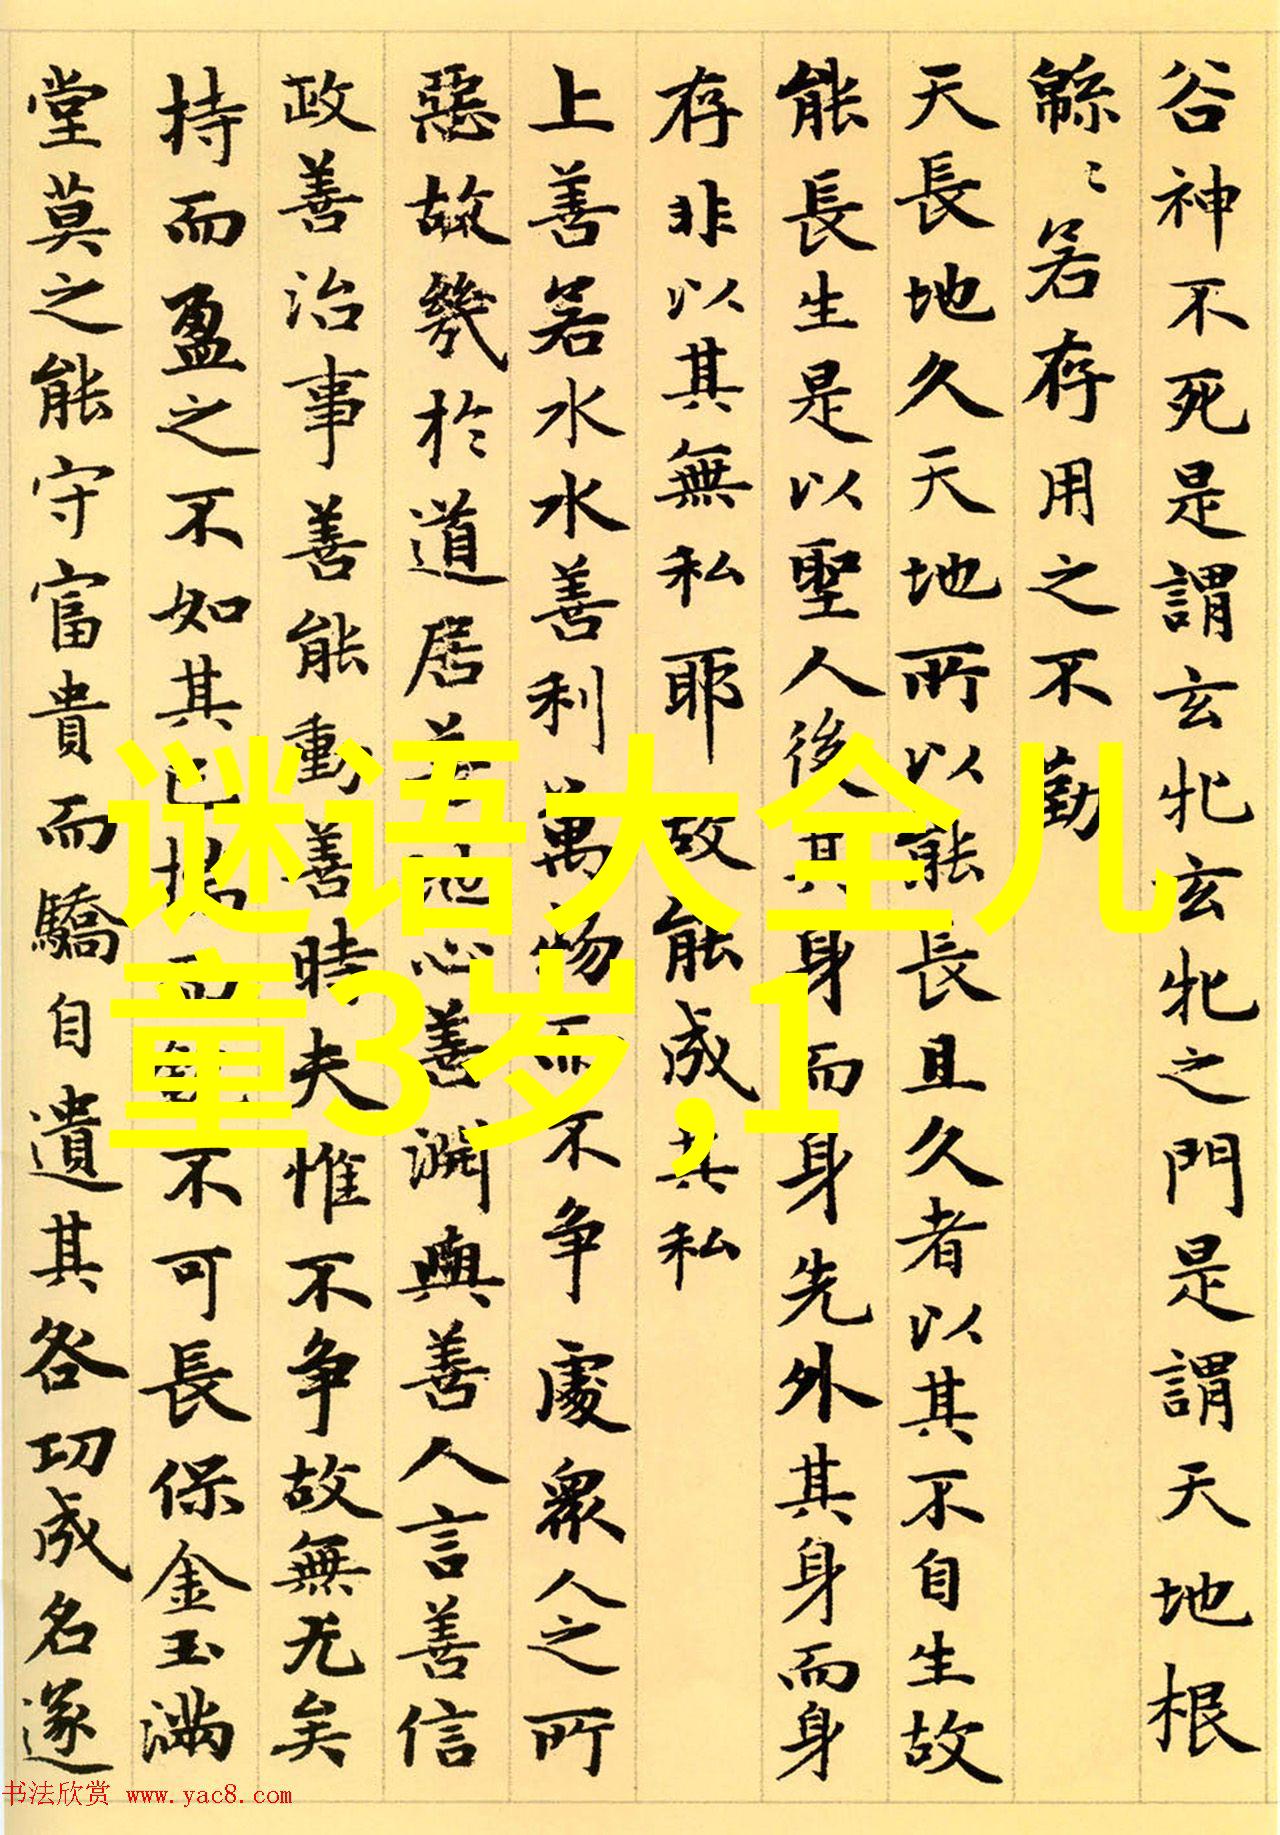 谷神不死是謂玄牝玄牝之門是謂天地根
緜〻若存用之不勤
天長地久天地所以能長且久者以其不自生故
能長生是以聖人後其身而身先外其身而身
存非以其無私耶故能成其私
上善若水水善利萬物而不争處衆人之所
惡故幾於道居善地心善淵與善人言善信
政善治事善能動善時夫惟不争故無尤矣
持而盈之不如其已揣而銳不可長保金玉滿
堂莫之能守富貴而驕自遺其咎功成名遂
谜语大全儿
童3岁,1
书法欣赏 www.yac8.com